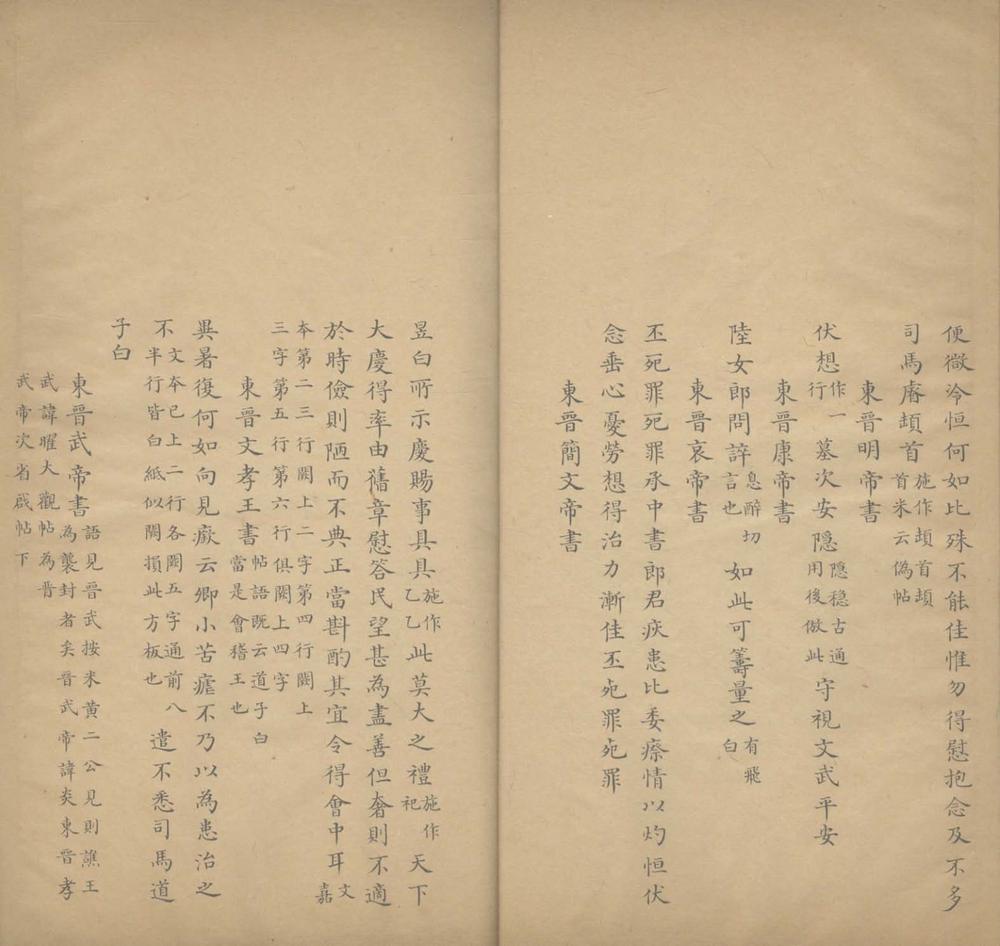 便微冷恒何如比殊不能佳惟勿得慰抱念及不多
司馬睿頓首施作頓首頓首米云偽帖
東晉明帝書
伏想作一行墓次安隱隱穩古通用後倣此守視文武平安
東晉康帝書
陸女郎問誶息醉切言也如此可籌量之有飛白
東晉哀帝書
丕死罪死罪承中書郎君疾患比委瘵情以灼恒伏
念垂心憂勞想得治力漸佳丕死罪死罪
東晉簡文帝書
昱白所示慶賜事具具施作乙乙此莫大之禮施作祀天下
大慶得率由舊章慰答民望甚為盡善但奢則不適
於時儉則陋而不典正當斟酌其宜令得會中耳文嘉
本第二三行闕上二字第四行闕上
三字第五行第六行俱闕上四字
東晉文孝王書帖語既云道子白當是會稽王也
異暑復何如向見瘚云卿小苦瘧不乃以為患治之
不文本已上二行各闕五字通前八半行皆白紙似闕損此方板也遣不悉司馬道
子白
東晉武帝書語見晉武按米黃二公見則譙王為襲封者矣晉武帝諱炎東晉孝
武諱曜大觀帖為晉
武帝次省啟帖下